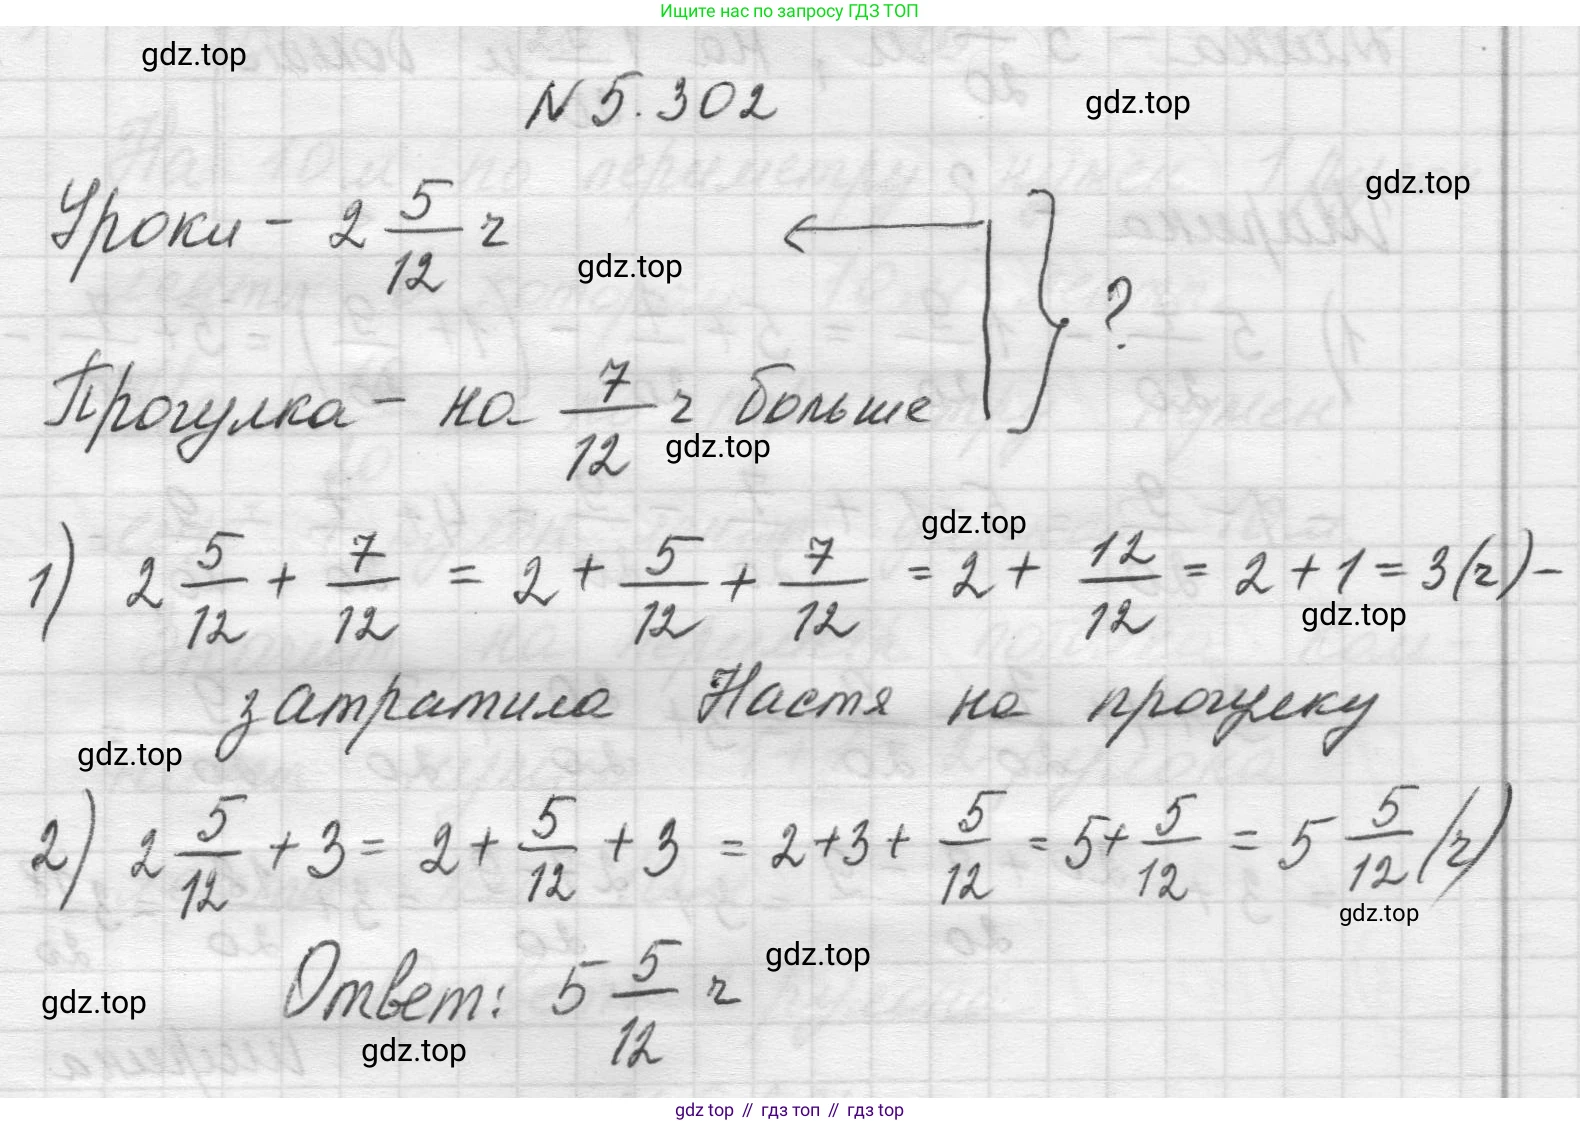 Ищите нас по запросу ГДЗ ТОП
gdz.top
N 5.302
gdz.top
gdz.top
Уроки - 2 5/12 ч
gdz.top
?
Прогулка - на 7/12 ч больше
gdz.top
gdz.top
1) 2 5/12 + 7/12 = 2 + 5/12 + 7/12 = 2 + 12/12 = 2 + 1 = 3 (ч) -
gdz.top
затратила Настя на прогулку
gdz.top
2) 2 5/12 + 3 = 2 + 5/12 + 3 = 2 + 3 + 5/12 = 5 + 5/12 = 5 5/12 (ч)
gdz.top
Ответ: 5 5/12 ч
gdz.top
gdz.top
gdz.top
gdz top // гдз топ // гдз top